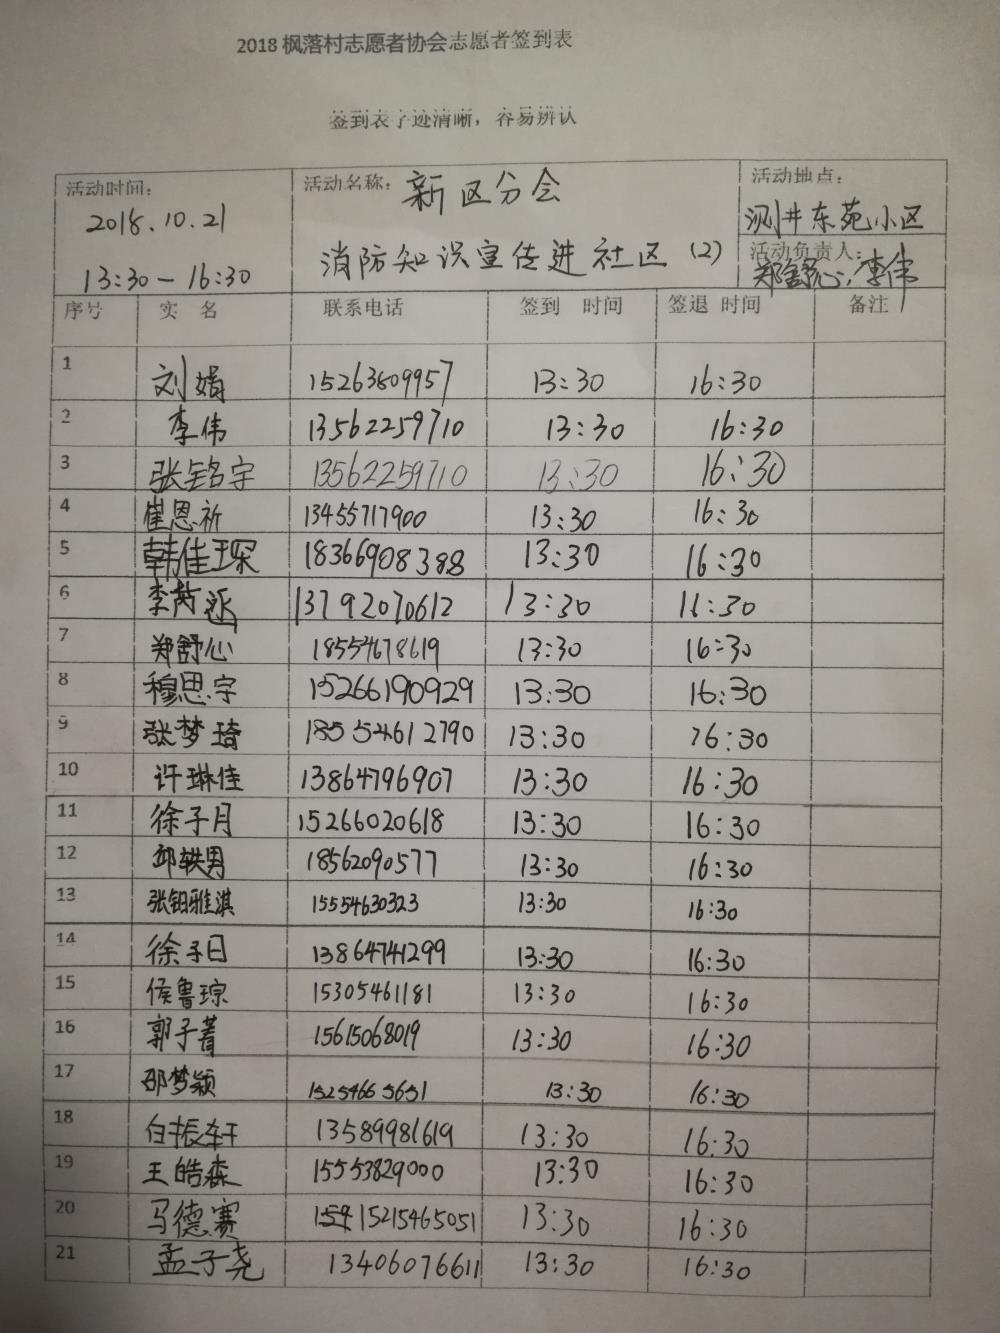 2018 枫落村志愿者协会志愿者签到表
签到表字迹清晰，容易辨认
活动时间： 2018.10.21 13:30－16:30
活动名称： 新区分会 消防知识宣传进社区（2）
活动地点： 测井东苑小区
活动负责人： 郑舒心，李伟
序号 实 名 联系电话 签到 时间 签退 时间 备注
1 刘娟 15263809957 13:30 16:30
2 李伟 13562259710 13:30 16:30
3 张铭宇 13562259710 13:30 16:30
4 崔恩祈 13455717900 13:30 16:30
5 韩佳琛 18366908388 13:30 16:30
6 李芮 13792070612 13:30 16:30
7 郑舒心 18554678619 13:30 16:30
8 穆思宇 15266190929 13:30 16:30
9 张梦琦 185 54612790 13:30 16:30
10 许琳佳 13864796907 13:30 16:30
11 徐子月 15266020618 13:30 16:30
12 邱轶男 18562090577 13:30 16:30
13 张钼雅淇 15554630323 13:30 16:30
14 徐子日 13864741299 13:30 16:30
15 侯鲁琮 15305461181 13:30 16:30
16 郭子菁 15615068019 13:30 16:30
17 邵梦颖 15254665651 13:30 16:30
18 白振轩 13589981619 13:30 16:30
19 王皓森 15553829000 13:30 16:30
20 马德赛 15215465051 13:30 16:30
21 孟子尧 13406076611 13:30 16:30